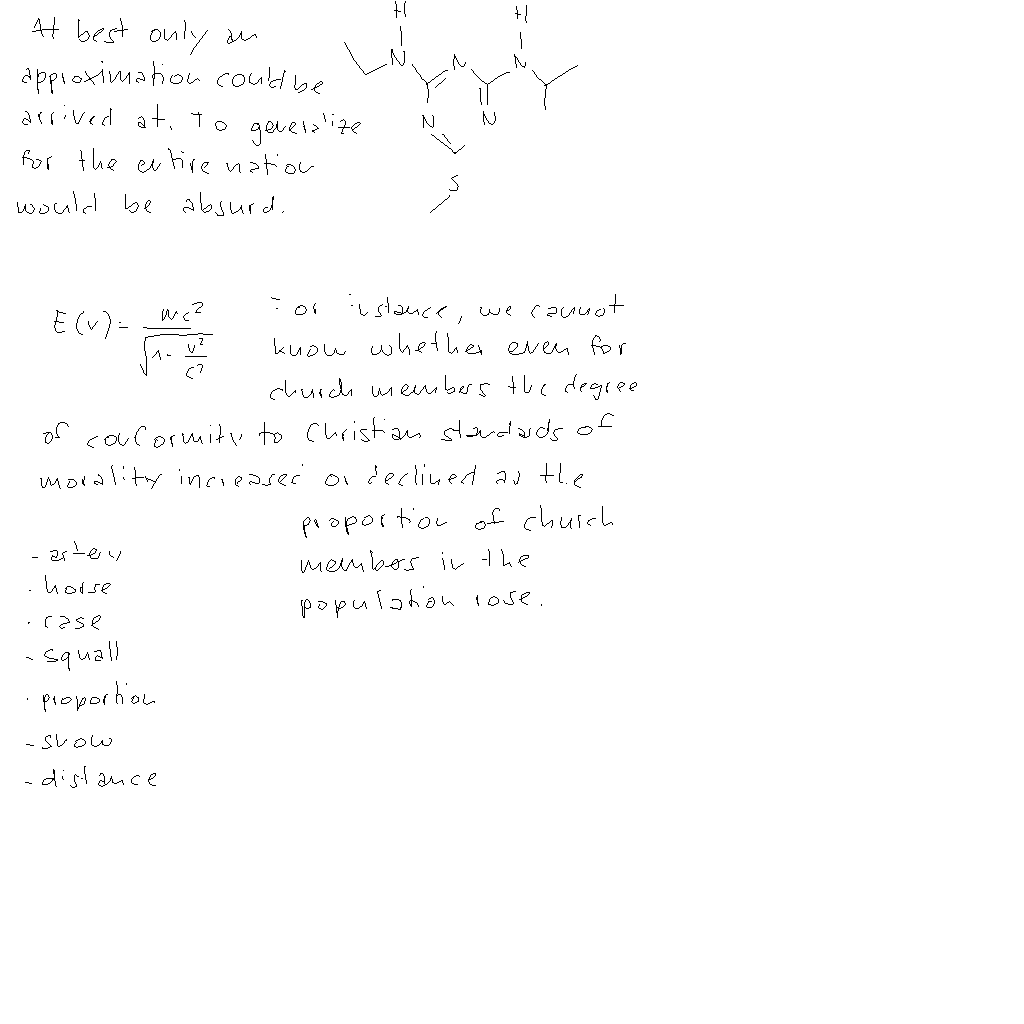 At best only an
approximation could be
arrived at. To generalize
for the entire nation
would be absurd.
H
H
N
N
N
N
N
S
E(v) = mc² / √(1 - v²/c²)
For istance, we cannot
know whether even for
church members the degree
of conformity to Christian standards of
morality increased or declined as the
proportion of church
members in the
population rose.
- artery
- horse
- case
- squall
- proportion
- snow
- distance